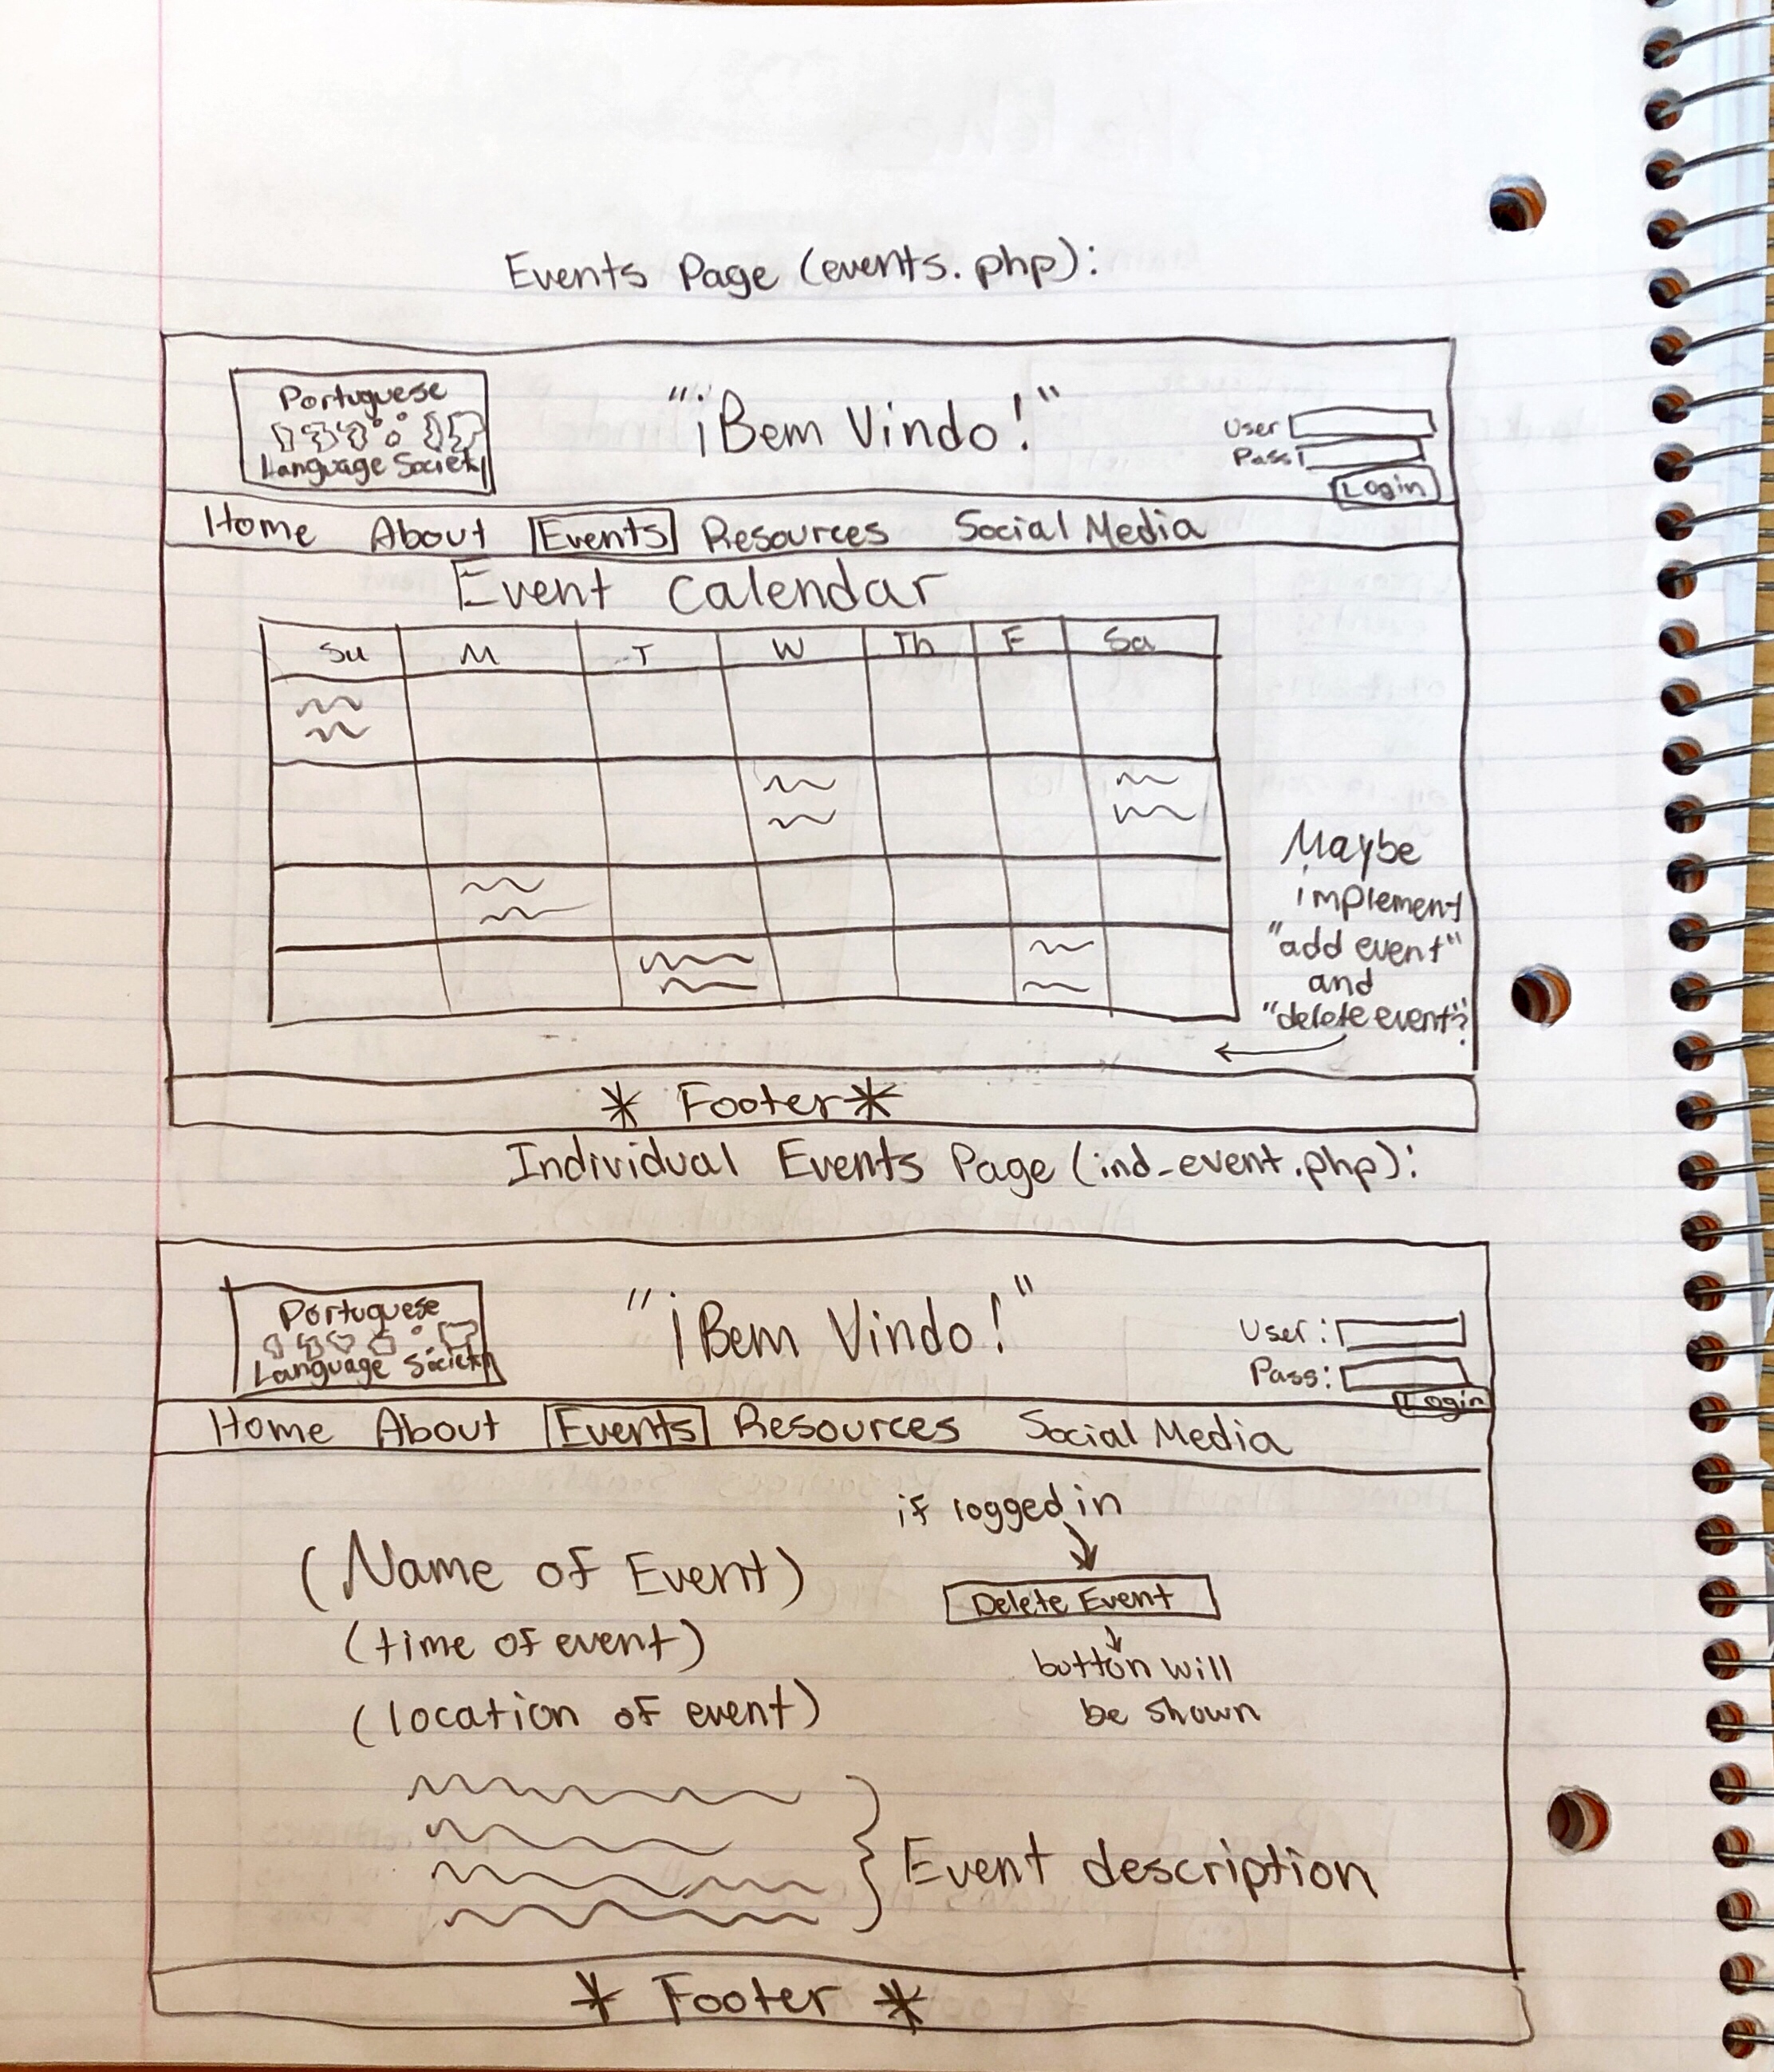 Events Page (events.php):
Portuguese
Language Society
"¡Bem Vindo!"
User
Pass
Login
Home About Events Resources Social Media
Event Calendar
Su M T W Th F Sa
Maybe
implement
"add event"
and
"delete event"?
* Footer *
Individual Events Page (ind_event.php):
Portuguese
Language Society
"¡Bem Vindo!"
User:
Pass:
Login
Home About Events Resources Social Media
if logged in
(Name of Event)
Delete Event
(time of event)
button will
be shown
(location of event)
Event description
* Footer *